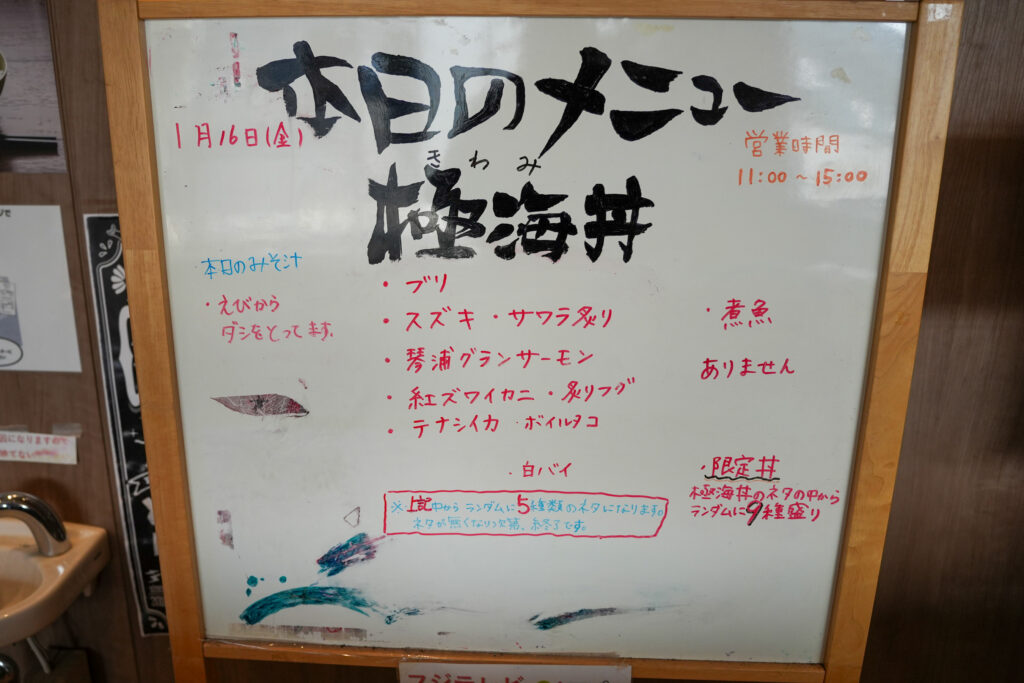 本日のメニュー
1月16日(金)
営業時間
11:00～15:00
きわみ
極海丼
本日のみそ汁
・えびから
ダシをとってます。
・ブリ
・スズキ・サワラ炙り
・琴浦グランサーモン
・紅ズワイカニ・炙りフグ
・テナシイカ・ボイルタコ
・白バイ
・煮魚
ありません
※上記中からランダムに5種類のネタになります。
ネタが無くなり次第、終了です。
・限定丼
極海丼のネタの中から
ランダムに9種盛り
フジテレビ